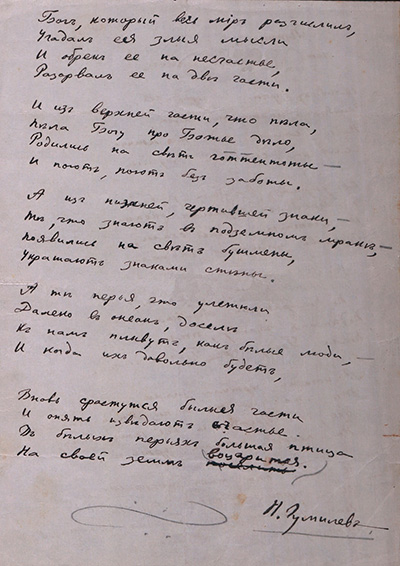 Богъ, который весь мiръ разчислилъ,
Угадалъ ея злыя мысли
И обрекъ ее на несчастье,
Разорвалъ ее на двѣ части.
И изъ верхней части, что пѣла,
Пѣла Богу про Божье дѣло,
Родились на свѣтъ готтентоты —
И поютъ, поютъ безъ заботы.
А изъ нижней, чертившей знаки, —
Тѣ, что знаютъ въ подземномъ мракѣ, —
Появились на свѣтъ бушмены,
Украшаютъ знаками стѣны.
А тѣ перья, что улетѣли
Далеко въ океанъ, доселѣ
Къ намъ плывутъ, какъ бѣлые люди, —
И когда ихъ довольно будетъ,
Вновь срастутся былыя части
И опять извѣдаютъ счастье.
Въ бѣлыхъ перьяхъ большая птица
На своей землѣ воцарится.
Н. Гумилевъ